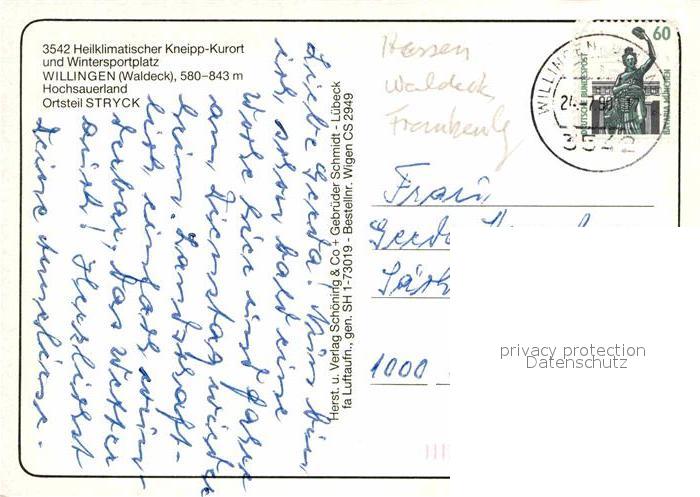 3542 Heilklimatischer Kneipp-Kurort
und Wintersportplatz
WILLINGEN (Waldeck), 580–843 m
Hochsauerland
Ortsteil STRYCK
Liebe Gerda! Nun bin
ich schon bald eine
Woche hier und fahre
am Dienstag wieder
heim. Landschaft-
lich einfach wun-
derbar, das Wetter
auch! Herzlichst
Deine Anneliese.
Herst. u. Verlag Schöning & Co + Gebrüder Schmidt - Lübeck
fa Luftaufn., gen. SH 1-73019 - Bestellnr. Wigen CS 2949
Hessen
Waldeck,
Frankenbg
WILLINGEN
24. 7. 90 17
3542
60
DEUTSCHE BUNDESPOST
BAVARIA MÜNCHEN
Frau
Gerda
1000
privacy protection
Datenschutz